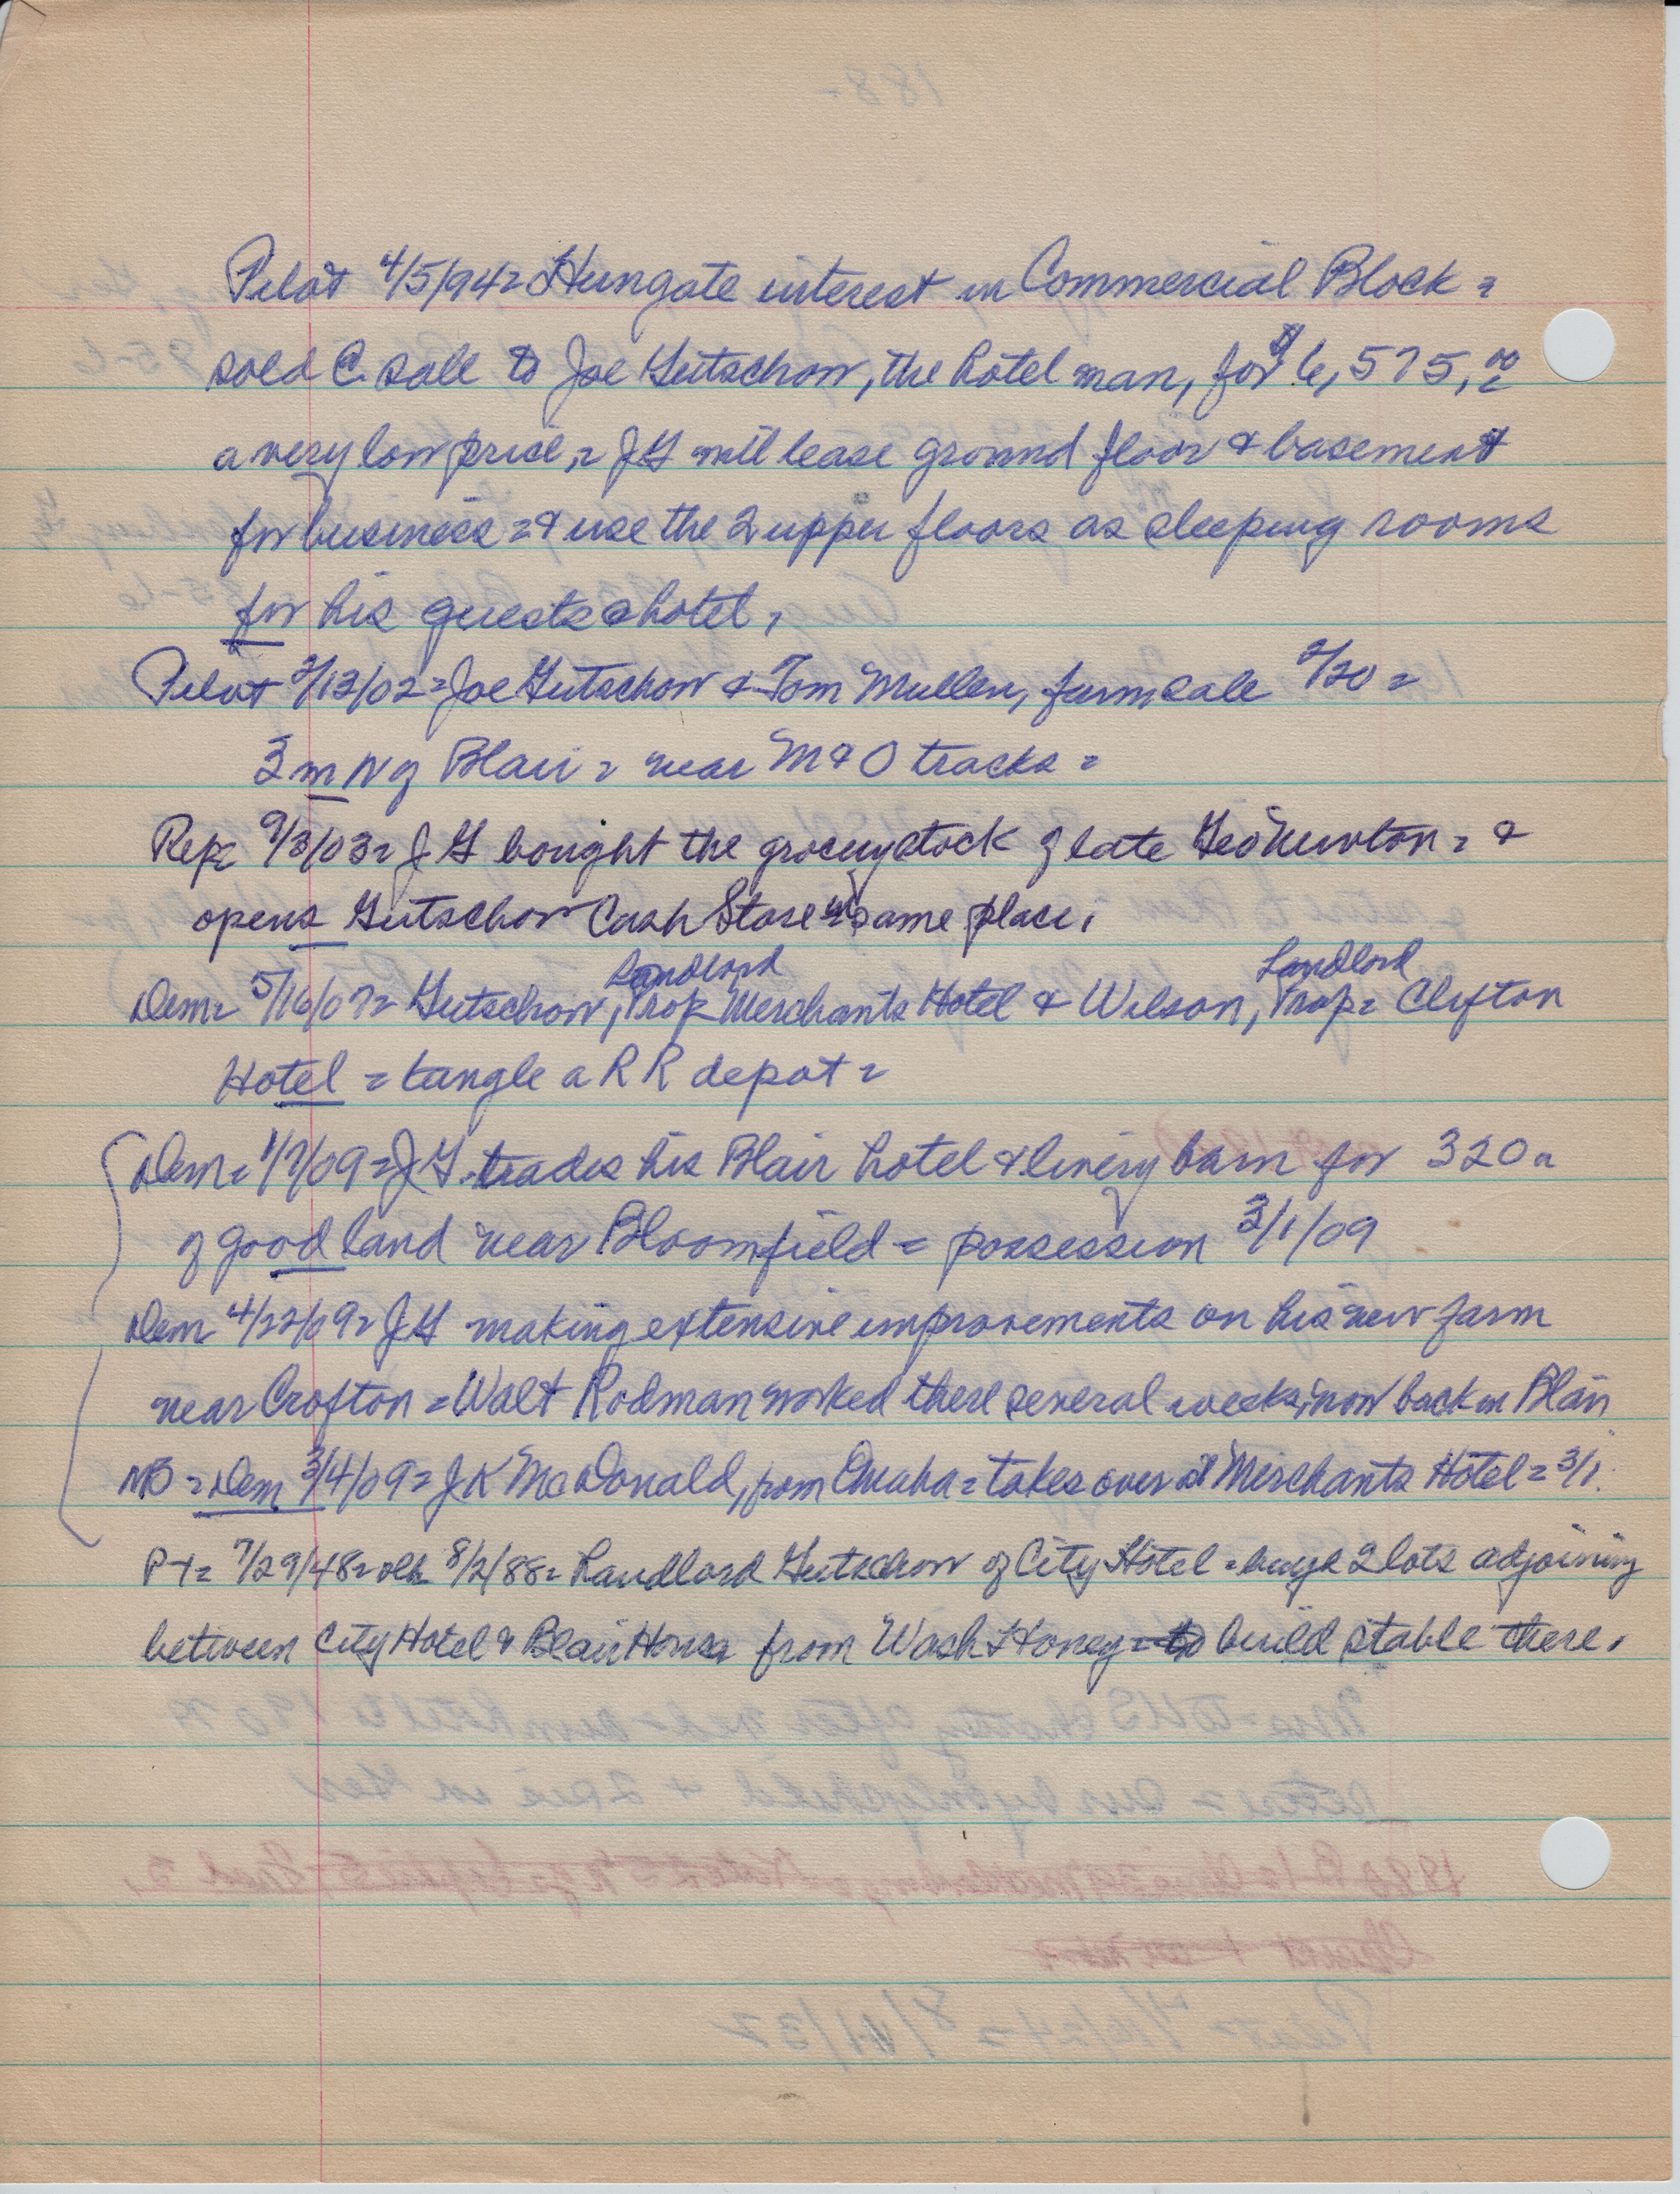 Pilot 4/5/94 = Hungate interest in Commercial Block =
sold @ sale to Joe Gutschow, the hotel man, for $6,575.00 =
a very low price, = JG will lease ground floor & basement
for business = & use the 2 upper floors as sleeping rooms
for his guests @ hotel,
Pilot 2/13/02 = Joe Gutschow & Tom Mullen, farm sale 2/20 =
3 m N of Blair = near M & O tracks =
Rep = 9/3/03 = JG bought the grocery stock of late Geo Newton = &
opens Gutschow Cash Store in same place,
Landlord Landlord
Dem = 5/16/07 = Gutschow, Prop Merchants Hotel & Wilson, Prop = Clifton
Hotel = tangle @ RR depot =
Dem = 1/7/09 = JG trades his Blair hotel & livery barn for 320 a
of good land near Bloomfield = possession 3/1/09
Dem 4/22/09 = JG making extensive improvements on his new farm
near Crofton = Walt Rodman worked there several weeks, now back in Blair
NB = Dem 3/4/09 = JK McDonald, from Omaha = takes over at Merchants Hotel = 3/1.
PT = 7/29/48 = 8/2/88 = Landlord Gutschow of City Hotel = buys 2 lots adjoining
between City Hotel & Blair House from Wash Honey = to build stable there.